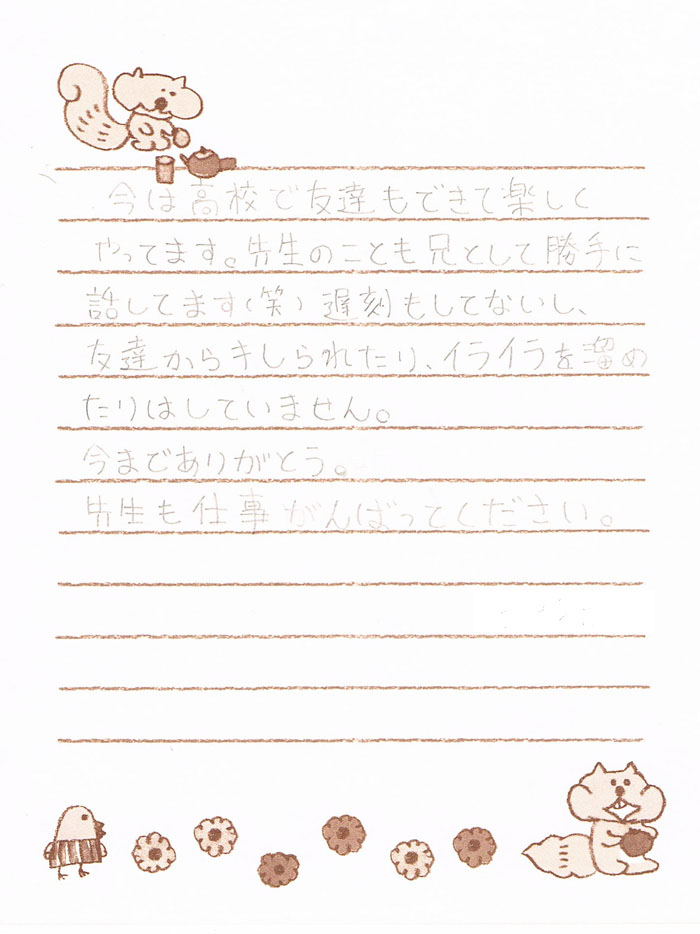 今は高校で友達もできて楽しく
やってます。先生のことも兄として勝手に
話してます(笑) 遅刻もしてないし、
友達からキしられたり、イライラを溜め
たりはしていません。
今までありがとう。
先生も仕事がんばってください。